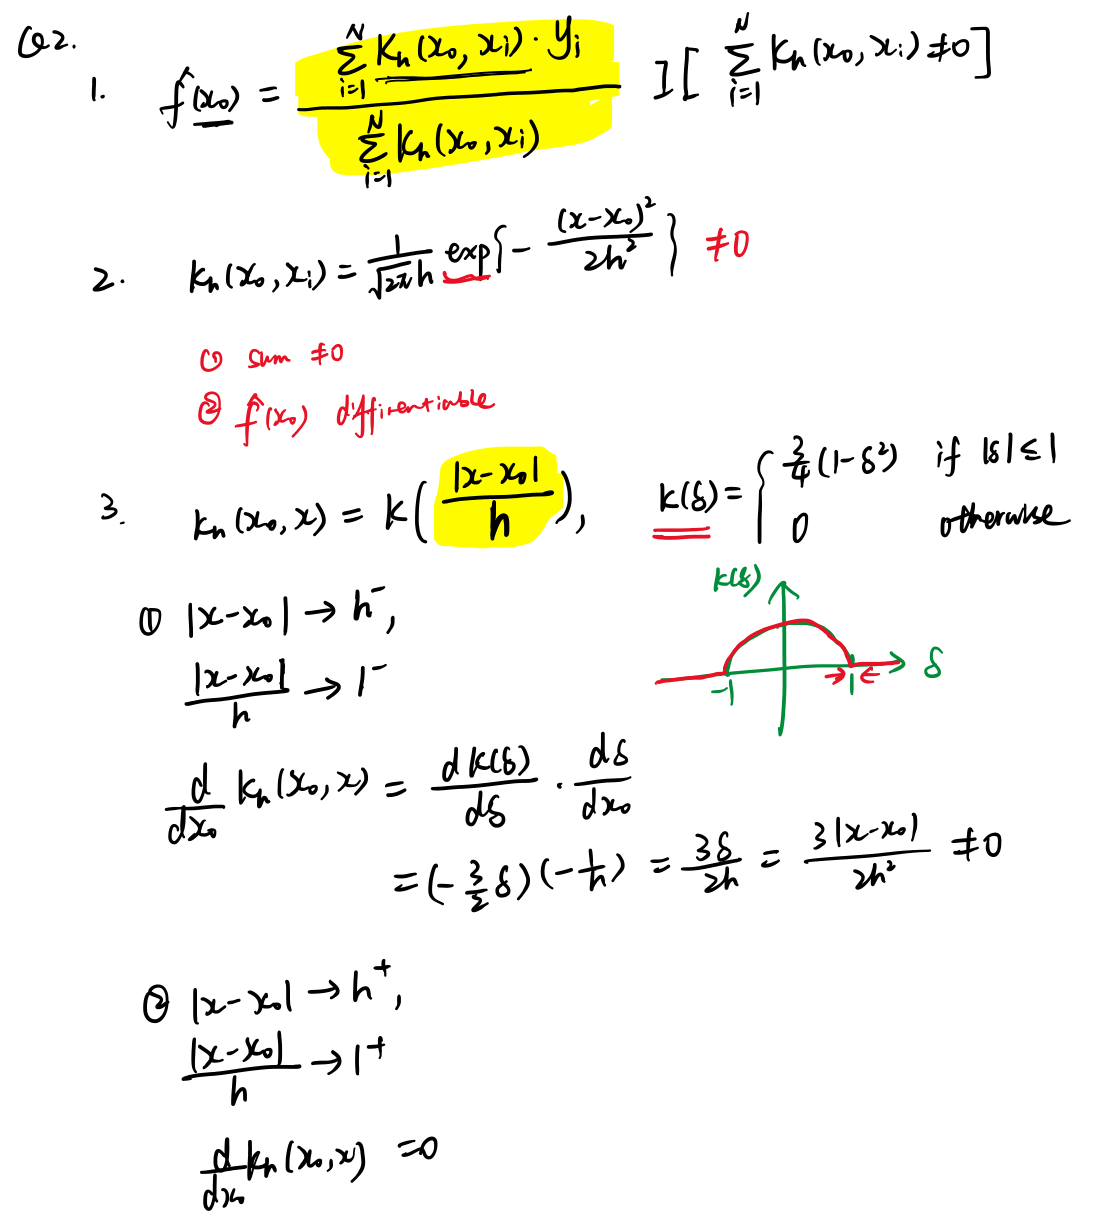 Q2.
1. f̂(x₀) = \frac{\sum_{i=1}^{N} K_h(x₀, x_i) · y_i}{\sum_{i=1}^{N} K_h(x₀, x_i)} I[ \sum_{i=1}^{N} K_h(x₀, x_i) ≠ 0 ]
2. K_h(x₀, x_i) = \frac{1}{\sqrt{2π} h} exp{ - \frac{(x-x₀)²}{2h²} } ≠ 0
① sum ≠ 0
② f̂(x₀) diffirentiable
3. K_h(x₀, x) = K( \frac{|x-x₀|}{h} ), K(δ) = { \frac{3}{4}(1-δ²) if |δ| ≤ 1
0 otherwise
K(δ)
δ
-1 1
① |x-x₀| → h⁻,
\frac{|x-x₀|}{h} → 1⁻
\frac{d}{dx₀} K_h(x₀, x) = \frac{dK(δ)}{dδ} · \frac{dδ}{dx₀}
= (-\frac{3}{2}δ)(-\frac{1}{h}) = \frac{3δ}{2h} = \frac{3|x-x₀|}{2h²} ≠ 0
② |x-x₀| → h⁺,
\frac{|x-x₀|}{h} → 1⁺
\frac{d}{dx₀} K_h(x₀, x) = 0